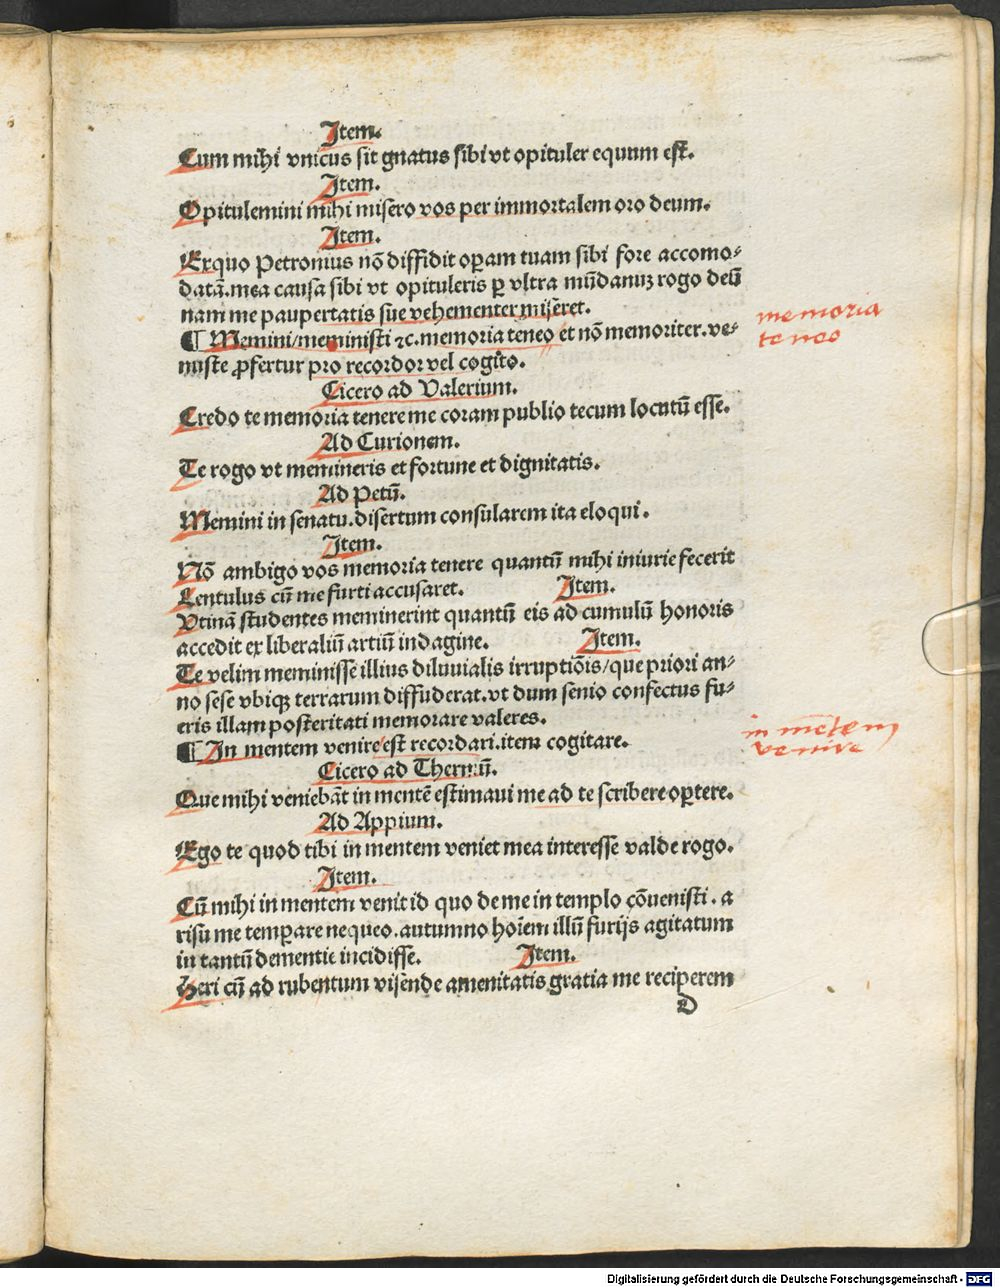 Item.
Cum mihi vnicus sit gnatus sibi vt opituler equum est.
Item.
Opitulemini mihi misero vos per immortalem oro deum.
Item.
Exquo Petronius nō diffidit oꝑam tuam sibi fore accomo⸗
datā.mea causa sibi vt opituleris ꝑ vltra mūdanuꝫ rogo deū
nam me paupertatis sue vehementer miseret.
¶ Memini/meministi ⁊c.memoria teneo et nō memoriter.ve⸗
nuste ꝓfertur pro recordor vel cogito.
Cicero ad Valerium.
Credo te memoria tenere me coram publio tecum locutū esse.
Ad Curionem.
Te rogo vt memineris et fortune et dignitatis.
Ad Petū.
Memini in senatu.disertum consularem ita eloqui.
Item.
Nō ambigo vos memoria tenere quantū mihi iniurie fecerit
Lentulus cū me furti accusaret. Item.
Vtinā studentes meminerint quantū eis ad cumulū honoris
accedit ex liberaliū artiū indagine. Item.
Te velim meminisse illius diluuialis irruptiōis/que priori an⸗
no sese vbiqꝫ terrarum diffuderat.vt dum senio confectus fu⸗
eris illam posteritati memorare valeres.
¶ In mentem venire est recordari.item cogitare.
Cicero ad Thermū.
Que mihi veniebāt in mentē estimaui me ad te scribere oꝑtere.
Ad Appium.
Ego te quod tibi in mentem veniet mea interesse valde rogo.
Item.
Cū mihi in mentem venit id quo de me in templo cōuenisti. a
risu me temꝑare nequeo.autumno hoīem illū furijs agitatum
in tantū dementie incidisse. Item.
Heri cū ad rubentum visende amenitatis gratia me reciperem
D
memoria
teneo
in mētem
venire
Digitalisierung gefördert durch die Deutsche Forschungsgemeinschaft - DFG